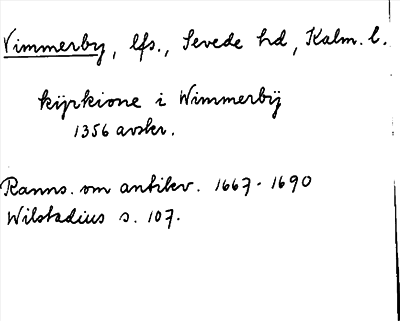 Vimmerby, lfs., Sevede hd, Kalm. l.
kÿrkione i Wimmerbÿ
1356 avskr.
Ranns. om antikv. 1667-1690
Wilstadius s. 107.